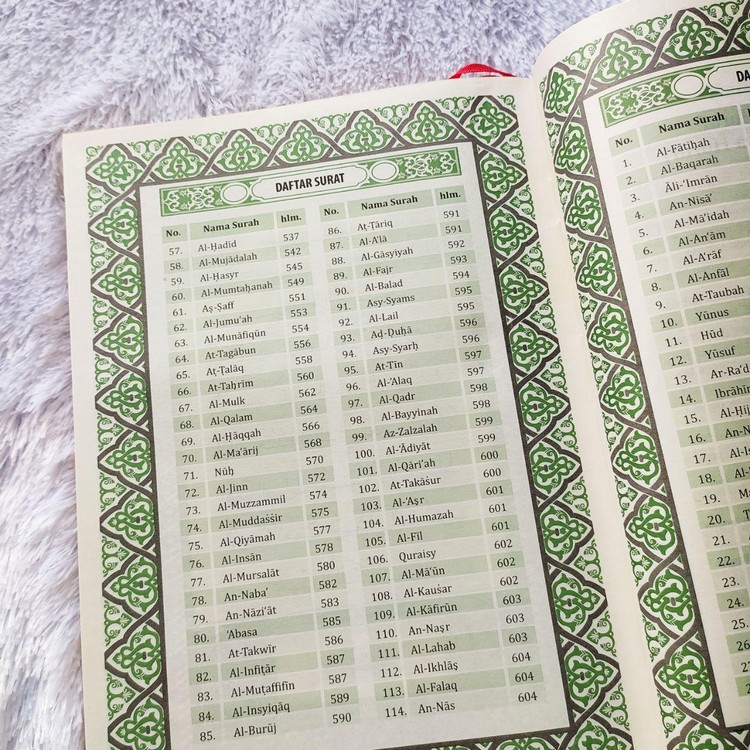 DAFTAR SURAT
No. Nama Surah hlm.
57. Al-Ḥadīd 537
58. Al-Mujādalah 542
59. Al-Ḥasyr 545
60. Al-Mumtaḥanah 549
61. Aṣ-Ṣaff 551
62. Al-Jumu'ah 553
63. Al-Munāfiqūn 554
64. At-Tagābun 556
65. Aṭ-Ṭalāq 558
66. At-Taḥrīm 560
67. Al-Mulk 562
68. Al-Qalam 564
69. Al-Ḥāqqah 566
70. Al-Ma'ārij 568
71. Nūḥ 570
72. Al-Jinn 572
73. Al-Muzzammil 574
74. Al-Muddaṡṡir 575
75. Al-Qiyāmah 577
76. Al-Insān 578
77. Al-Mursalāt 580
78. An-Naba' 582
79. An-Nāzi'āt 583
80. 'Abasa 585
81. At-Takwīr 586
82. Al-Infiṭār 587
83. Al-Muṭaffifīn 587
84. Al-Insyiqāq 589
85. Al-Burūj 590
No. Nama Surah hlm.
86. Aṭ-Ṭāriq 591
87. Al-A'lā 591
88. Al-Gāsyiyah 592
89. Al-Fajr 593
90. Al-Balad 594
91. Asy-Syams 595
92. Al-Lail 595
93. Aḍ-Ḍuḥā 596
94. Asy-Syarḥ 596
95. At-Tīn 597
96. Al-'Alaq 597
97. Al-Qadr 598
98. Al-Bayyinah 598
99. Az-Zalzalah 599
100. Al-'Ādiyāt 599
101. Al-Qāri'ah 600
102. At-Takāṡur 600
103. Al-'Aṣr 601
104. Al-Humazah 601
105. Al-Fīl 601
106. Quraisy 602
107. Al-Mā'ūn 602
108. Al-Kauṡar 602
109. Al-Kāfirūn 603
110. An-Naṣr 603
111. Al-Lahab 603
112. Al-Ikhlāṣ 604
113. Al-Falaq 604
114. An-Nās 604
No. Nama Surah
1. Al-Fātiḥah
2. Al-Baqarah
3. Āli-'Imrān
4. An-Nisā'
5. Al-Mā'idah
6. Al-An'ām
7. Al-A'rāf
8. Al-Anfāl
9. At-Taubah
10. Yūnus
11. Hūd
12. Yūsuf
13. Ar-Ra'd
14.
15.
16.
17.
18.
19.
20.
21.
22.
23.
24.
25.